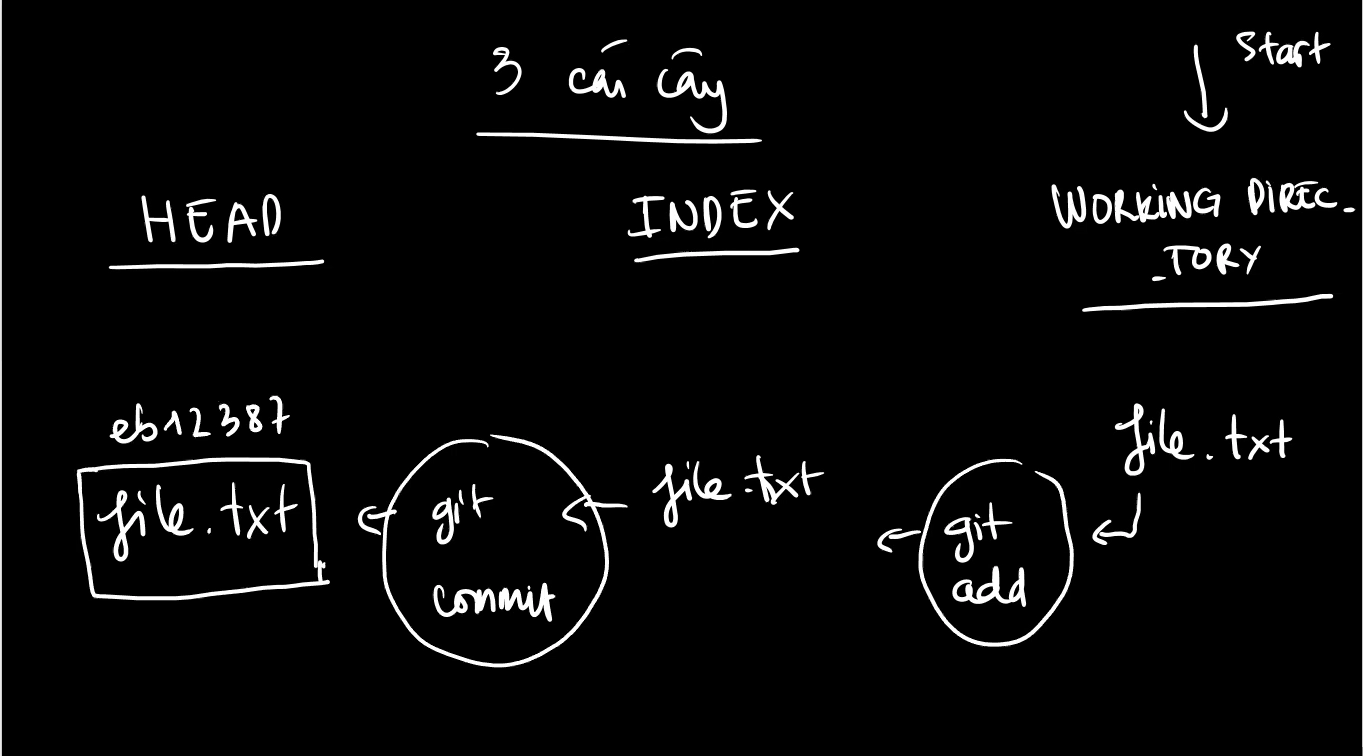 3 cái cây
Start
HEAD
INDEX
WORKING DIREC_
_TORY
eb12387
file.txt
git
commit
file.txt
git
add
file.txt